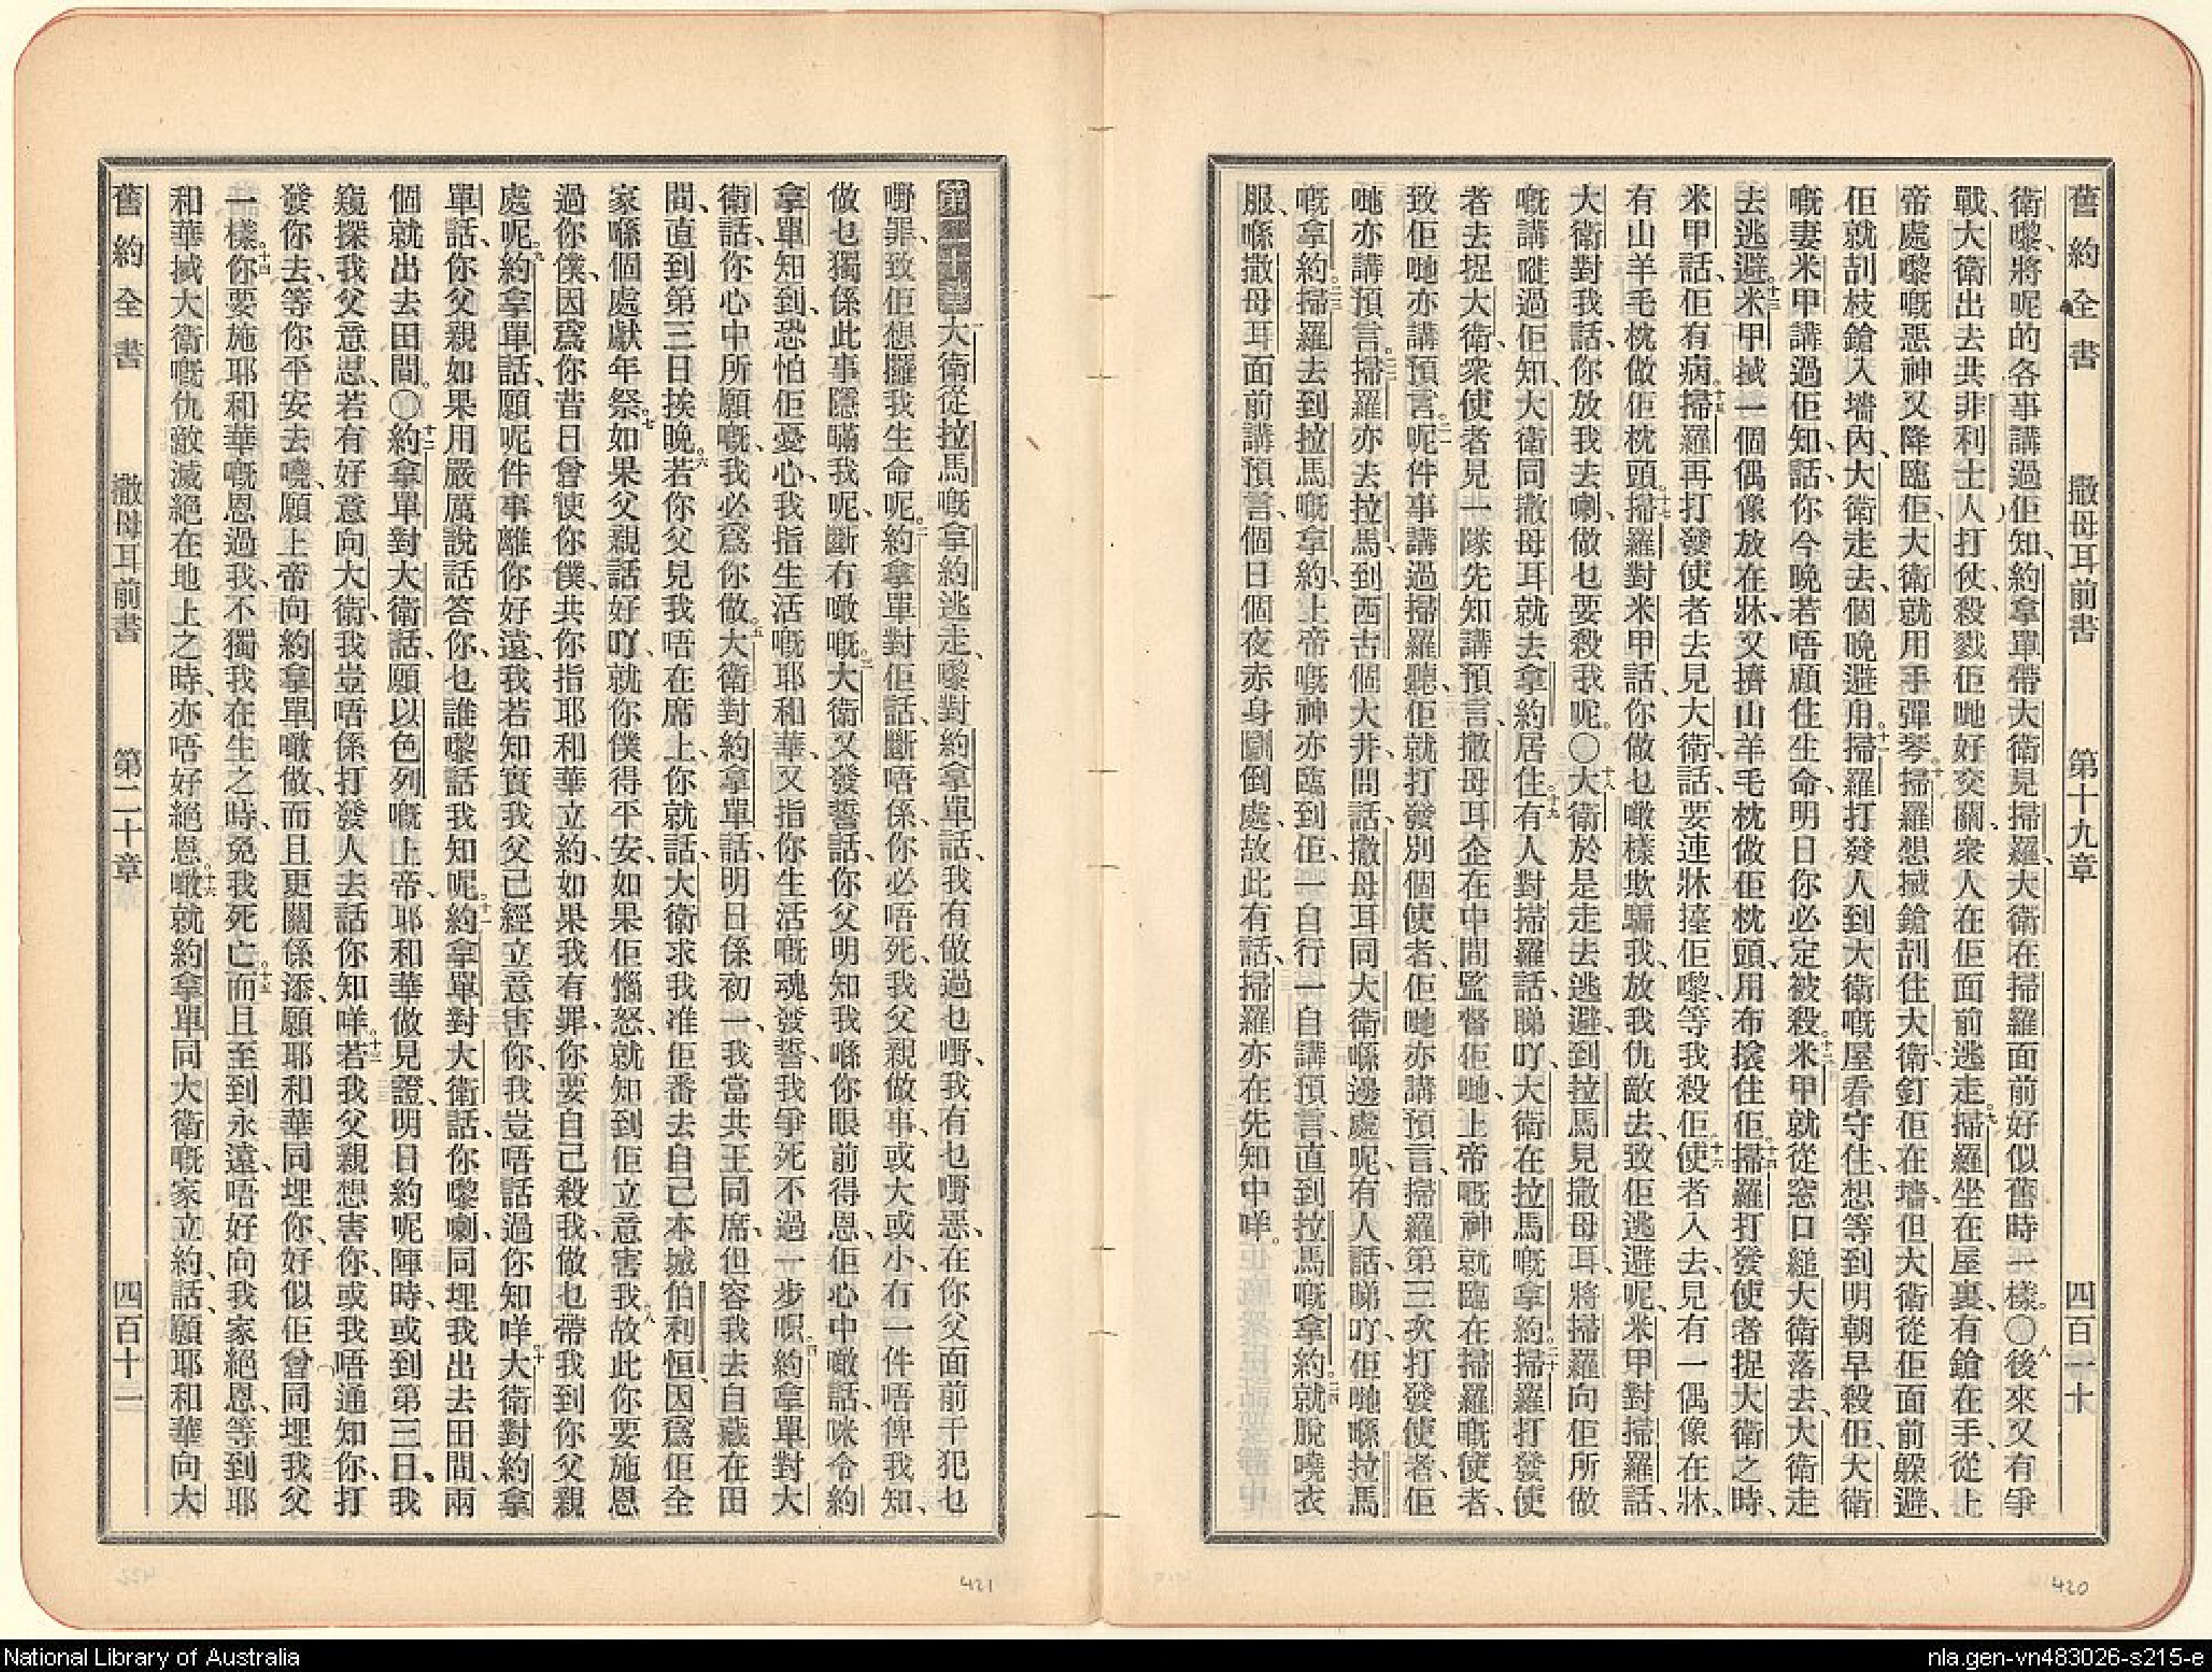 舊約全書 撒母耳前書 第十九章 四百一十
衛嚟、將呢的各事講過佢知、約拿單帶大衛見掃羅、大衛在掃羅面前好似舊時一樣。○八後來又有爭
戰、大衛出去共非利士人打仗、殺戮佢哋好交關、衆人在佢面前逃走。九掃羅坐在屋裏、有鎗在手、從上
帝處嚟嘅惡神又降臨佢、大衛就用手彈琴。十掃羅想搣鎗剳住大衛、釘佢在墻、但大衛從佢面前躲避、
佢就剳枝鎗入墻內、大衛走去、個晚避用。十一掃羅打發人到大衛嘅屋看守住、想等到明朝早殺佢、大衛
嘅妻米甲講過佢知、話、你今晚若唔顧住生命、明日你必定被殺。十二米甲就從窓口縋大衛落去、大衛走
去逃避。十三米甲搣一個偶像放在牀、又擠山羊毛枕做佢枕頭、用布揞住佢。十四掃羅打發使者捉大衛之時、
米甲話、佢有病。十五掃羅再打發使者去見大衛、話、要連牀擡佢嚟、等我殺佢。十六使者入去、見有一偶像在牀、
有山羊毛枕做佢枕頭。十七掃羅對米甲話、你做乜噉樣欺騙我、放我仇敵去、致佢逃避呢、米甲對掃羅話、
大衛對我話、你放我去喇、做乜要殺我呢。○十八大衛於是走去逃避、到拉馬見撒母耳、將掃羅向佢所做
嘅講嗮過佢知、大衛同撒母耳就去拿約居住。十九有人對掃羅話、睇吖、大衛在拉馬嘅拿約。二十掃羅打發使
者去捉大衛、衆使者見一隊先知講預言、撒母耳企在中間監督佢哋、上帝嘅神就臨在掃羅嘅使者、
致佢哋亦講預言。二一呢件事講過掃羅聽、佢就打發別個使者、佢哋亦講預言、掃羅第三次打發使者、佢
哋亦講預言。二二掃羅亦去拉馬、到西古個大井、問話、撒母耳同大衛喺邊處呢、有人話、睇吖、佢哋喺拉馬
嘅拿約。二三掃羅去到拉馬嘅拿約、上帝嘅神亦臨到佢、一自行一自講預言、直到拉馬嘅拿約。二四就脫曉衣
服、喺撒母耳面前講預言、個日個夜赤身瞓倒處、故此有話、掃羅亦在先知中咩。
420
第二十章 一大衛從拉馬嘅拿約逃走、嚟對約拿單話、我有做過乜嘢、我有乜嘢惡、在你父面前干犯乜
嘢罪、致佢想攞我生命呢。二約拿單對佢話、斷唔係、你必唔死、我父親做事、或大或小、冇一件唔俾我知、
做乜獨係此事隱瞞我呢、斷冇噉嘅。三大衛又發誓話、你父明知我喺你眼前得恩、佢心中噉話、咪令約
拿單知到、恐怕佢憂心、我指生活嘅耶和華、又指你生活嘅魂發誓、我爭死不過一步呮。四約拿單對大
衛話、你心中所願嘅、我必爲你做。五大衛對約拿單話、明日係初一、我當共王同席、但容我去自藏在田
間、直到第三日挨晚。六若你父見我唔在席上、你就話、大衛求我准佢番去自己本城伯利恒、因爲佢全
家喺個處獻年祭。七如果父親話好吖、就你僕得平安、如果佢惱怒、就知到佢立意害我。八故此你要施恩
過你僕、因爲你昔日曾使你僕、共你指耶和華立約、如果我有罪、你要自己殺我、做乜帶我到你父親
處呢。九約拿單話、願呢件事離你好遠、我若知實我父已經立意害你、我豈唔話過你知咩。十大衛對約拿
單話、你父親如果用嚴厲說話答你、乜誰嚟話我知呢。十一約拿單對大衛話、你嚟喇、同埋我出去田間、兩
個就出去田間。○十二約拿單對大衛話、願以色列嘅上帝、耶和華做見證、明日約呢陣時、或到第三日、我
窺探我父意思、若有好意向大衛、我豈唔係打發人去話你知咩。十三若我父親想害你、或我唔通知你、打
發你去、等你平安去曉、願上帝向約拿單噉做、而且更關係添、願耶和華同埋你、好似佢曾同埋我父
一樣。十四你要施耶和華嘅恩過我、不獨我在生之時、免我死亡。十五而且至到永遠、唔好向我家絕恩、等到耶
和華搣大衛嘅仇敵滅絕在地上之時、亦唔好絕恩。十六噉就約拿單同大衛嘅家立約、話、願耶和華向大
舊約全書 撒母耳前書 第二十章 四百十二
421
National Library of Australia
nla.gen-vn483026-s215-e